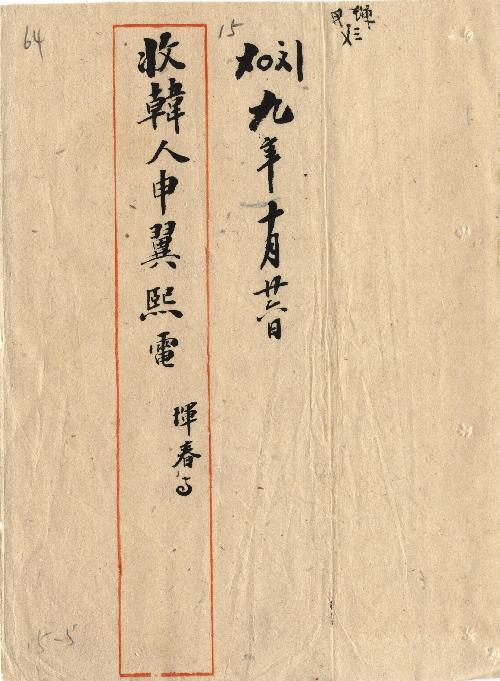 九年十月廿六日
收韓人申翼熙電
琿春
64
15
15-5